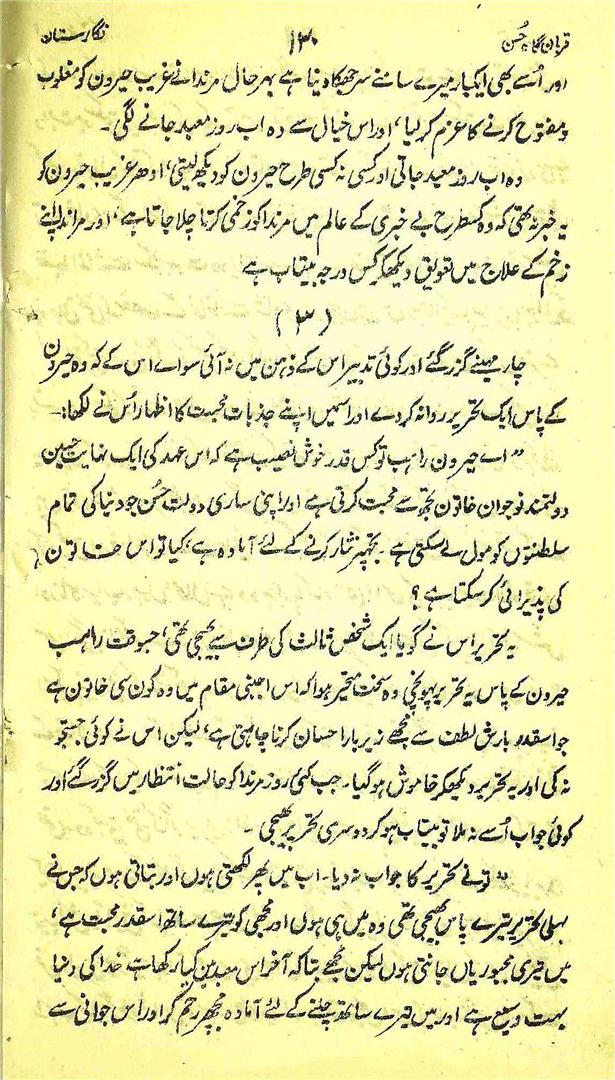 قربان گاہِ حُسن ۱۳۰ نگارستان
اور اُسے بھی ایکبار میرے سامنے سر جھکا دینا ہے بہر حال مرندا نے غریب حیرون کو مغلوب
و مفتوح کرنے کا عزم کر لیا، اور اس خیال سے وہ اب روز معبد جانے لگی۔
وہ اب روز معبد جاتی اور کسی نہ کسی طرح حیرون کو دیکھ لیتی، اودھر غریب حیرون کو
یہ خبر نہ تھی کہ وہ کسطرح بے خبری کے عالم میں مرندا کو زخمی کرتا چلا جاتا ہے، اور مراندا اپنے
زخم کے علاج میں تعویق دیکھکر کس درجہ بیتاب ہے
(۳)
چار مہینے گزر گئے اور کوئی تدبیر اس کے ذہن میں نہ آئی سواے اس کے کہ وہ حیرون
کے پاس ایک تحریر روانہ کر دے اور اسمیں اپنے جذبات محبت کا اظہار اس نے لکھا:۔
"اے حیرون راہب تو کس قدر خوش نصیب ہے کہ اس عہد کی ایک نہایت حسین
دولتمند نوجوان خاتون تجھ سے محبت کرتی ہے اور اپنی ساری دولت حُسن جو دنیا کی تمام
سلطنتوں کو مول لے سکتی ہے۔ تجھپر نثار کرنے کے لئے آمادہ ہے، کیا تو اس خاتون
کی پذیرائی کر سکتا ہے؟
یہ تحریر اس نے گویا ایک شخص ثالث کی طرف سے بھیجی تھی، جسوقت راہب
حیرون کے پاس یہ تحریر پہونچی وہ سخت متحیر ہوا کہ اس اجنبی مقام میں وہ کون سی خاتون ہے
جو اسقدر بارش لطف سے مجھے زیر بار احسان کرنا چاہتی ہے، لیکن اس نے کوئی جستجو
نہ کی اور یہ تحریر دیکھکر خاموش ہو گیا۔ جب کئی روز مرندا کو حالت انتظار میں گزر گئے اور
کوئی جواب اُسے نہ ملا تو بیتاب ہو کر دوسری تحریر بھیجی۔
"تونے تحریر کا جواب نہ دیا۔ اب میں پھر لکھتی ہوں اور بتاتی ہوں کہ جس نے
پہلی تحریر تیرے پاس بھیجی تھی وہ میں ہی ہوں اور مجھی کو تیرے ساتھ اسقدر محبت ہے،
میں تیری مجبوریاں جانتی ہوں لیکن مجھے بتا کہ آخر اس معبد میں کیا رکھا ہے خدا کی دنیا
بہت وسیع ہے اور میں تیرے ساتھ چلنے کے لئے آمادہ مجھپر رحم کر اور اس جوانی سے